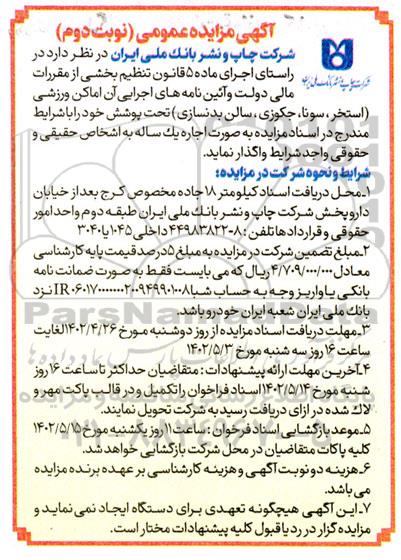 آگهی مزایده عمومی (نوبت دوم)
شرکت چاپ و نشر بانک ملی ایران در نظر دارد در
راستای اجرای ماده ۵ قانون تنظیم بخشی از مقررات
مالی دولت و آئین نامه های اجرایی آن اماکن ورزشی
(استخر، سونا، جکوزی، سالن بدنسازی) تحت پوشش خود را با شرایط
مندرج در اسناد مزایده به صورت اجاره یک ساله به اشخاص حقیقی و
حقوقی واجد شرایط واگذار نماید.
شرایط و نحوه شرکت در مزایده:
۱-محل دریافت اسناد کیلومتر ۱۸ جاده مخصوص کرج بعد از خیابان
داروپخش شرکت چاپ و نشر بانک ملی ایران طبقه دوم واحد امور
حقوقی و قراردادها تلفن: ۸-۴۴۹۸۳۸۲۲۰ داخلی ۱۰۴۵ یا ۳۰۴۰
۲-مبلغ تضمین شرکت در مزایده به مبلغ ۵ درصد قیمت پایه کارشناسی
معادل ۴/۷۰۹/۰۰۰/۰۰۰ ریال که می بایست فقط به صورت ضمانت نامه
بانکی یا واریز وجه به حساب شبا نزد
بانک ملی ایران شعبه ایران خودرو باشد.
۳-مهلت دریافت اسناد مزایده از روز دوشنبه مورخ ۱۴۰۲/۴/۲۶ لغایت
ساعت ۱۶ روز سه شنبه مورخ ۱۴۰۲/۵/۳
۴-آخرین مهلت ارائه پیشنهادات: متقاضیان حداکثر تا ساعت ۱۶ روز
شنبه مورخ ۱۴۰۲/۵/۱۴ اسناد فراخوان را تکمیل و در قالب پاکت مهر و
لاک شده در ازای دریافت رسید به شرکت تحویل نمایند.
۵-موعد بازگشایی اسناد فرخوان: ساعت ۱۱ روز یکشنبه مورخ ۱۴۰۲/۵/۱۵
کلیه پاکات متقاضیان در محل شرکت بازگشایی خواهد شد.
۶-هزینه دو نوبت آگهی و هزینه کارشناسی بر عهده برنده مزایده
می باشد.
۷-این آگهی هیچگونه تعهدی برای دستگاه ایجاد نمی نماید و
مزایده گزار در رد یا قبول کلیه پیشنهادات مختار است.